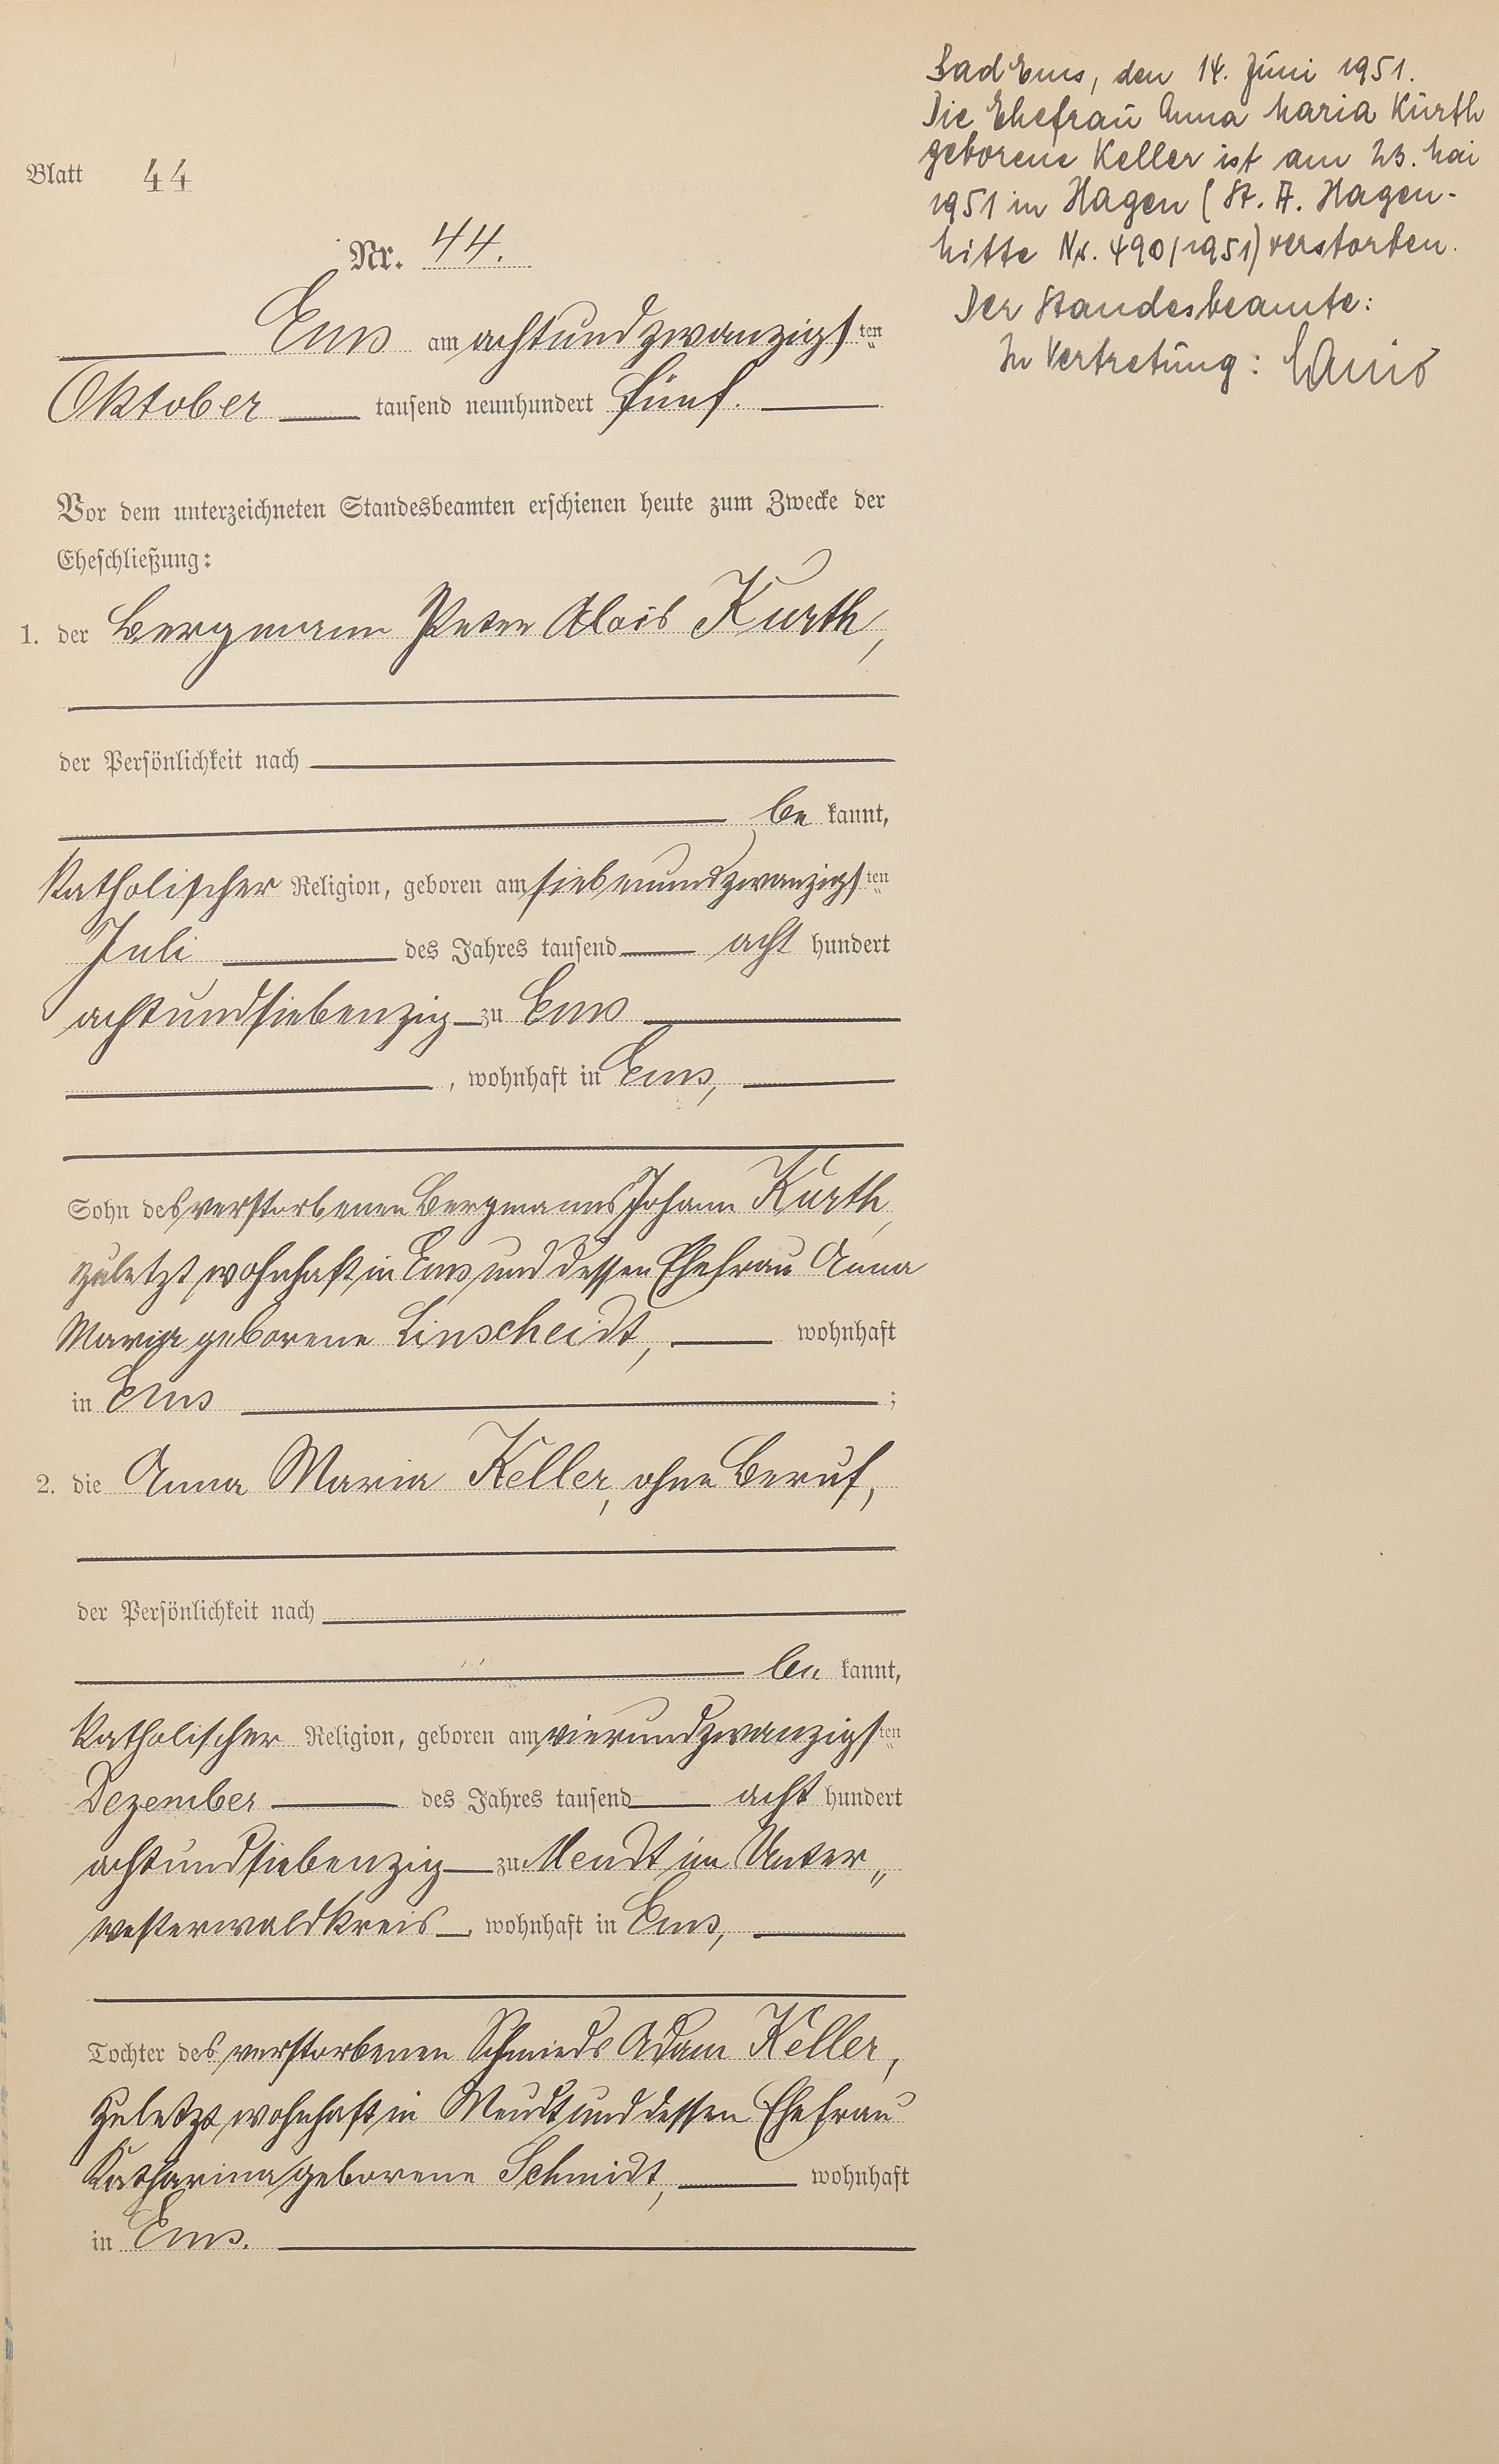 Blatt 44
Nr. 44.
Ems am achtundzwanzigsten
Oktober tausend neunhundert fünf.
Vor dem unterzeichneten Standesbeamten erschienen heute zum Zwecke der
Eheschließung:
1. der Bergmann Peter Alois Kurth,
der Persönlichkeit nach
be kannt,
katholischer Religion, geboren am siebenundzwanzigsten
Juli des Jahres tausend acht hundert
achtundsiebenzig zu Ems
, wohnhaft in Ems,
Sohn des verstorbenen Bergmanns Johann Kurth,
zuletzt wohnhaft in Ems und dessen Ehefrau Anna
Maria geborene Linscheidt, wohnhaft
in Ems ;
2. die Anna Maria Keller, ohne Beruf,
der Persönlichkeit nach
be kannt,
katholischer Religion, geboren am vierundzwanzigsten
Dezember des Jahres tausend acht hundert
achtundsiebenzig zu Meudt im Unter„
westerwaldkreis, wohnhaft in Ems,
Tochter des verstorbenen Schmieds Adam Keller,
zuletzt wohnhaft in Meudt und dessen Ehefrau
Katharina geborene Schmidt, wohnhaft
in Ems.
Bad Ems, den 14. Juni 1951.
Die Ehefrau Anna Maria Kurth
geborene Keller ist am 23. Mai
1951 in Hagen (St. A. Hagen-
Mitte Nr. 490/1951) verstorben.
Der Standesbeamte:
In Vertretung: